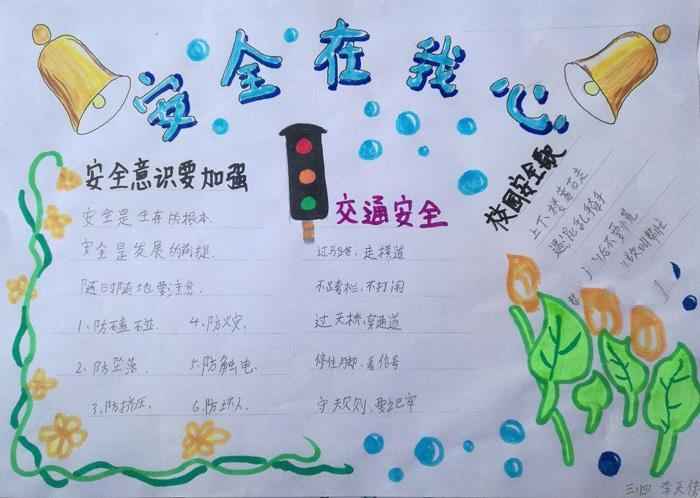 安全在我心
安全意识要加强
安全是生存的根本
安全是发展的前提
随时随地要注意
1、防磕碰  4、防火灾
2、防坠落  5、防触电
3、防挤压  6、防坏人
交通安全
过马路，走横道
不跨栏，不打闹
过天桥，穿通道
停住脚，看信号
守规则，要记牢
校园安全歌
上下楼，靠右走